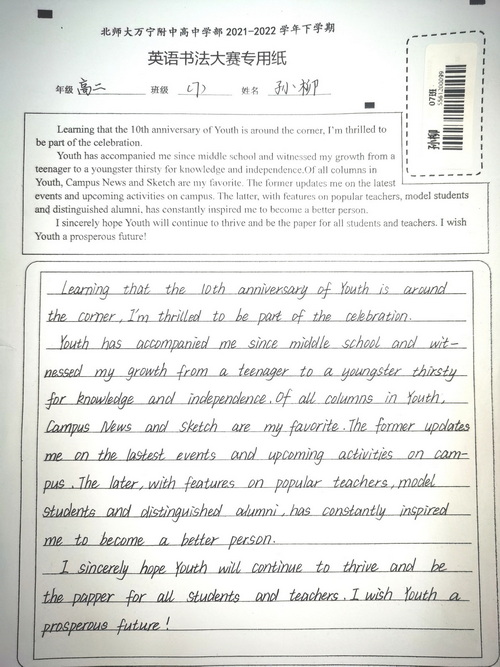 北师大万宁附中高中学部 2021-2022 学年下学期
英语书法大赛专用纸
年级 高二 班级 (7) 姓名 孙柳
07班
孙柳
Learning that the 10th anniversary of Youth is around the corner, I'm thrilled to
be part of the celebration.
Youth has accompanied me since middle school and witnessed my growth from a
teenager to a youngster thirsty for knowledge and independence.Of all columns in
Youth, Campus News and Sketch are my favorite. The former updates me on the latest
events and upcoming activities on campus. The latter, with features on popular teachers, model students
and distinguished alumni, has constantly inspired me to become a better person.
I sincerely hope Youth will continue to thrive and be the paper for all students and teachers. I wish
Youth a prosperous future!
Learning that the 10th anniversary of Youth is around
the corner, I'm thrilled to be part of the celebration.
Youth has accompanied me since middle school and wit-
nessed my growth from a teenager to a youngster thirsty
for knowledge and independence. Of all columns in Youth,
Campus News and Sketch are my favorite. The former updates
me on the lastest events and upcoming activities on cam-
pus. The later, with features on popular teachers, model
students and distinguished alumni, has constantly inspired
me to become a better person.
I sincerely hope Youth will continue to thrive and be
the papper for all students and teachers. I wish Youth a
prosperous future!